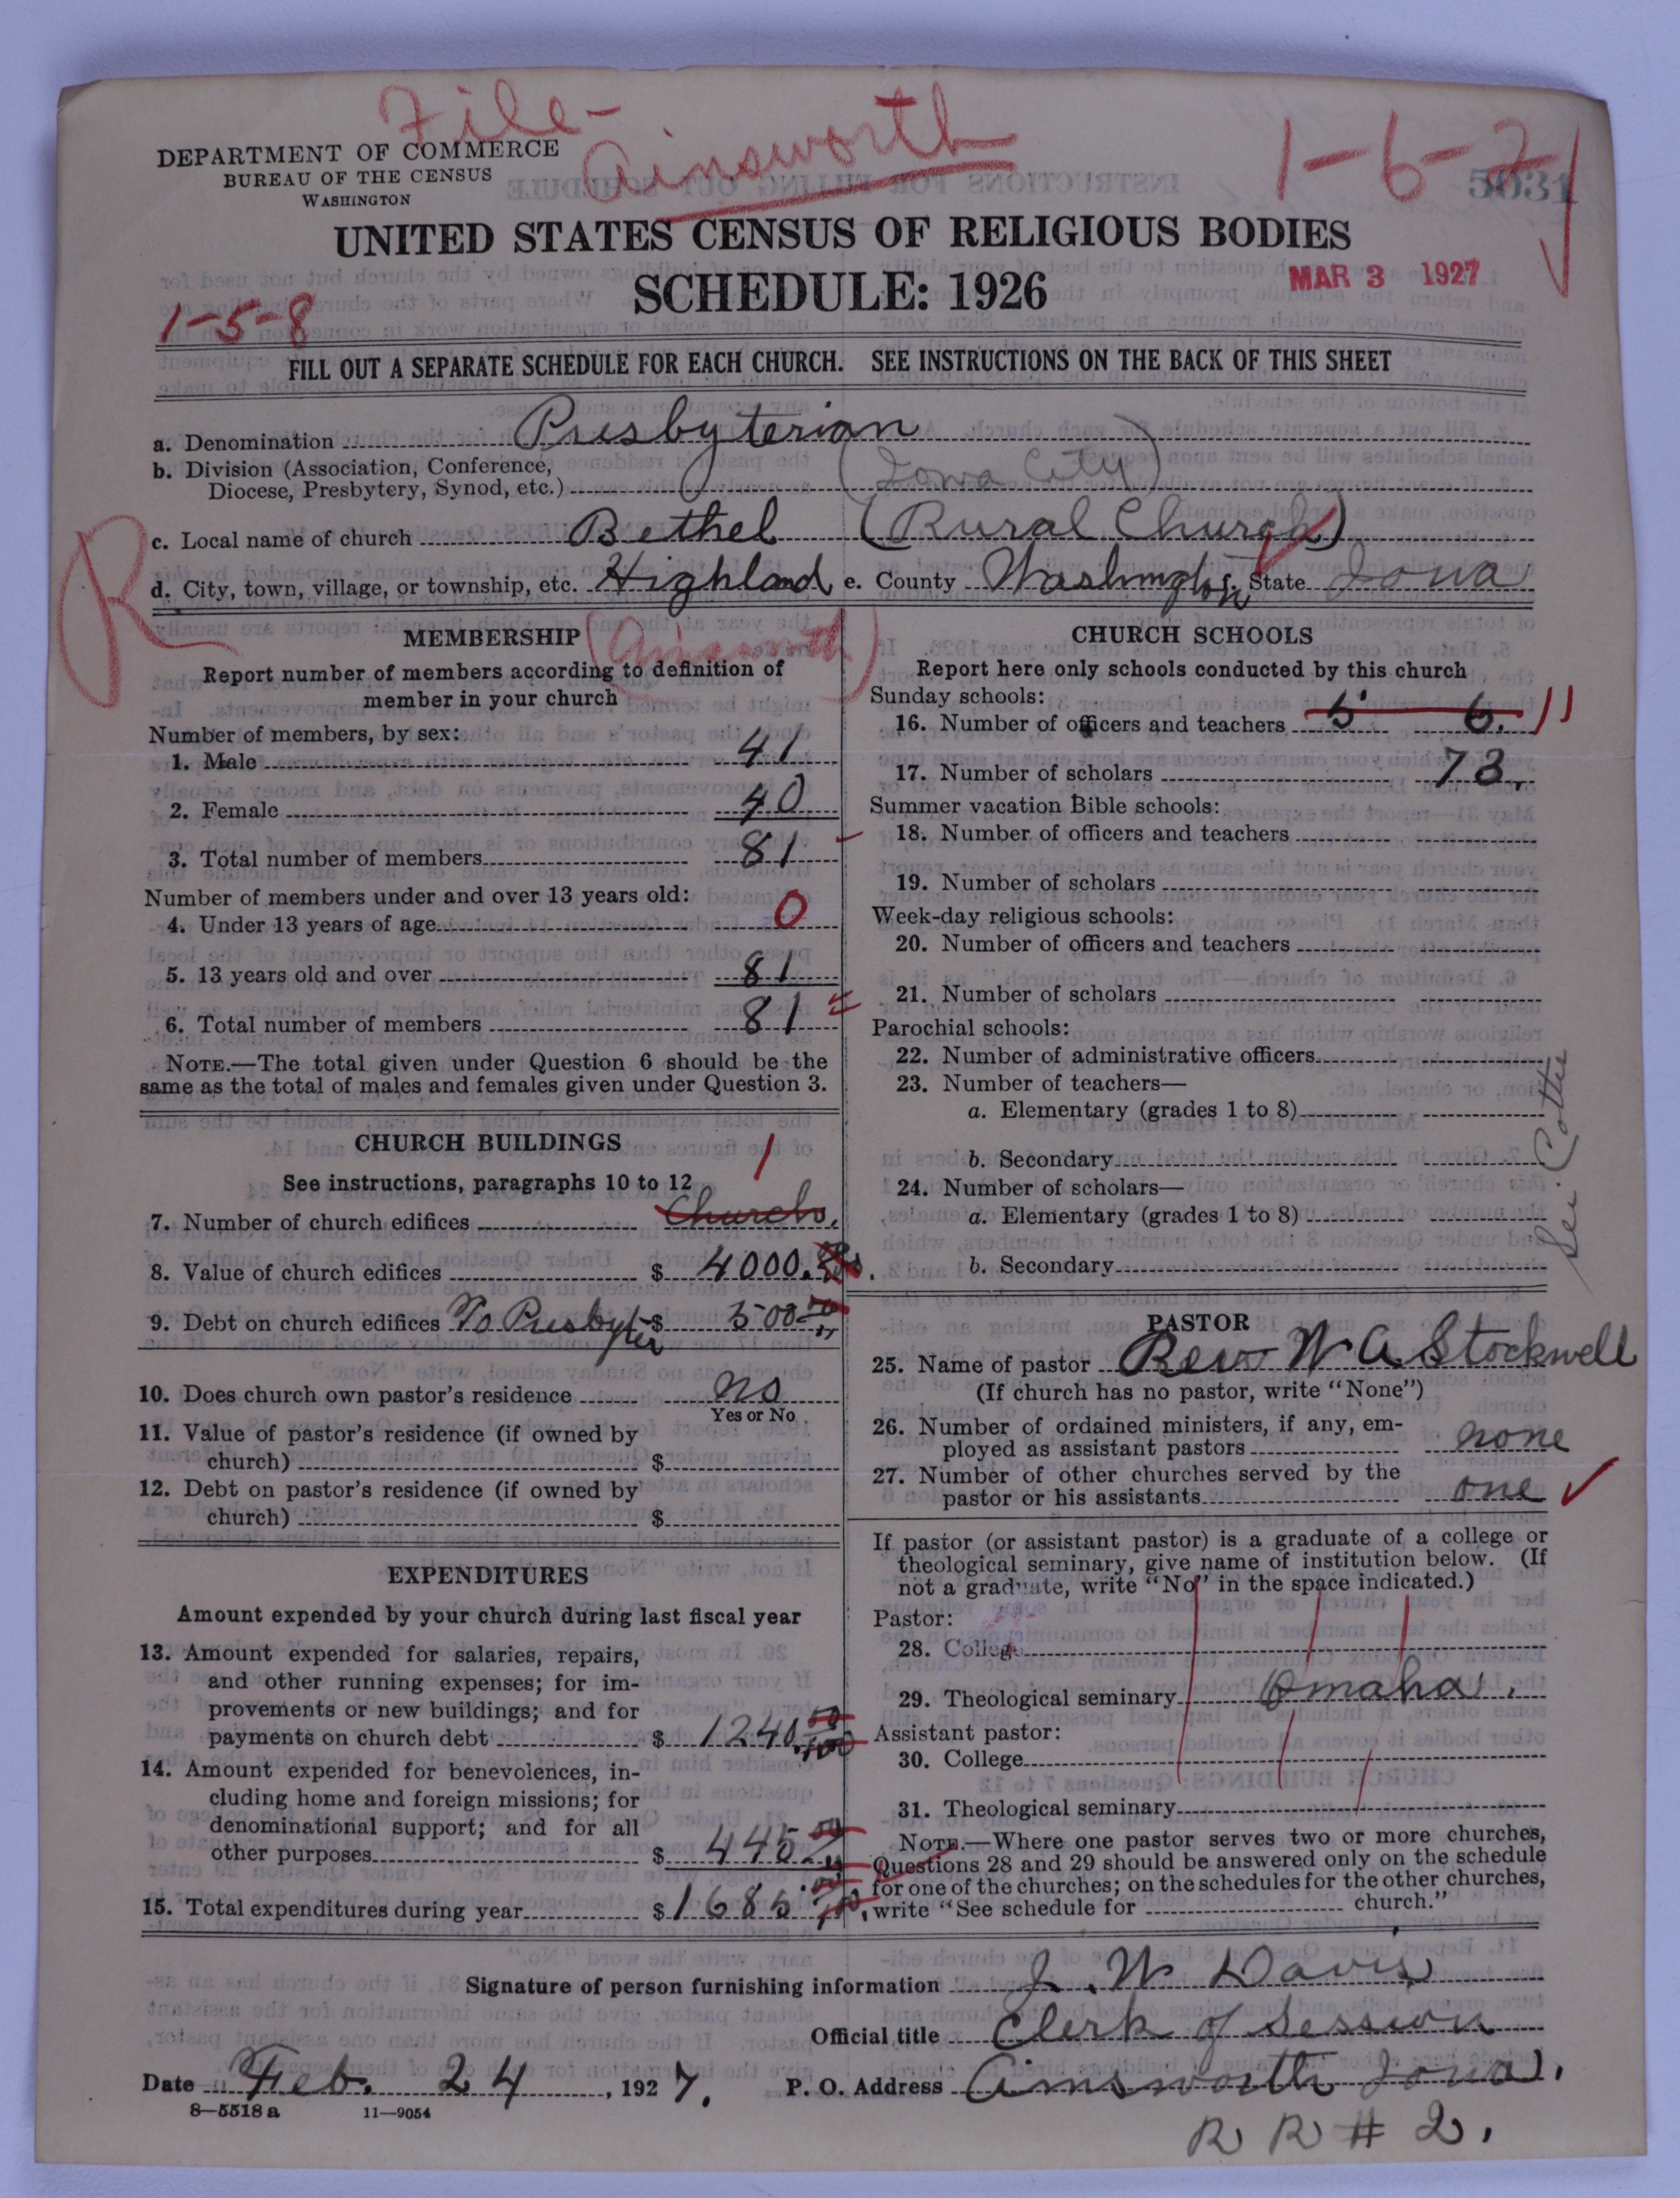 File-
Ainsworth
1-6-2
5031
DEPARTMENT OF COMMERCE
BUREAU OF THE CENSUS
WASHINGTON
UNITED STATES CENSUS OF RELIGIOUS BODIES
SCHEDULE: 1926
MAR 3 1927
1-5-8
FILL OUT A SEPARATE SCHEDULE FOR EACH CHURCH. SEE INSTRUCTIONS ON THE BACK OF THIS SHEET
a. Denomination Presbyterian
b. Division (Association, Conference,
Diocese, Presbytery, Synod, etc.) (Iowa City)
c. Local name of church Bethel (Rural Church)
R
d. City, town, village, or township, etc. Highland e. County Washington f. State Iowa
MEMBERSHIP (Ainsworth)
Report number of members according to definition of
member in your church
Number of members, by sex:
1. Male 41
2. Female 40
3. Total number of members 81
Number of members under and over 13 years old:
4. Under 13 years of age 0
5. 13 years old and over 81
6. Total number of members 81
NOTE.—The total given under Question 6 should be the
same as the total of males and females given under Question 3.
CHURCH BUILDINGS
See instructions, paragraphs 10 to 12
1
7. Number of church edifices Church.
8. Value of church edifices $ 4000.
9. Debt on church edifices To Presbyter $ 500
10. Does church own pastor's residence no
Yes or No
11. Value of pastor's residence (if owned by
church) $
12. Debt on pastor's residence (if owned by
church) $
EXPENDITURES
Amount expended by your church during last fiscal year
13. Amount expended for salaries, repairs,
and other running expenses; for im-
provements or new buildings; and for
payments on church debt $ 1240.
14. Amount expended for benevolences, in-
cluding home and foreign missions; for
denominational support; and for all
other purposes $ 445
15. Total expenditures during year $ 1685
CHURCH SCHOOLS
Report here only schools conducted by this church
Sunday schools:
16. Number of officers and teachers 5 6. 11
17. Number of scholars 73.
Summer vacation Bible schools:
18. Number of officers and teachers
19. Number of scholars
Week-day religious schools:
20. Number of officers and teachers
21. Number of scholars
Parochial schools:
22. Number of administrative officers
23. Number of teachers—
a. Elementary (grades 1 to 8)
b. Secondary
24. Number of scholars—
a. Elementary (grades 1 to 8)
b. Secondary
PASTOR
25. Name of pastor Rev W A Stockwell
(If church has no pastor, write "None")
26. Number of ordained ministers, if any, em-
ployed as assistant pastors none
27. Number of other churches served by the
pastor or his assistants one
If pastor (or assistant pastor) is a graduate of a college or
theological seminary, give name of institution below. (If
not a graduate, write "No" in the space indicated.)
Pastor:
28. College
29. Theological seminary Omaha.
Assistant pastor:
30. College
31. Theological seminary
NOTE.—Where one pastor serves two or more churches,
Questions 28 and 29 should be answered only on the schedule
for one of the churches; on the schedules for the other churches,
write "See schedule for church."
Signature of person furnishing information J. W Davis
Official title Clerk of Session
Date Feb. 24, 1927. P. O. Address Ainsworth Iowa.
8—5518 a 11—9054
R R # 2.